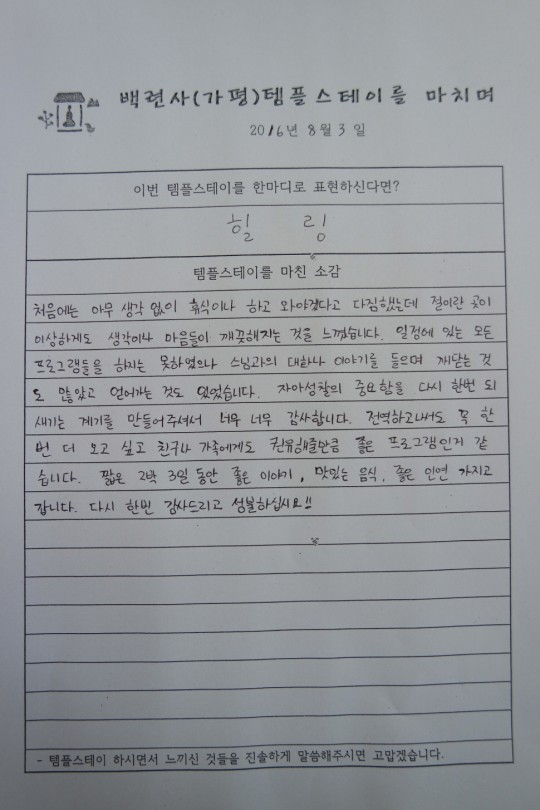 백련사(가평)템플스테이를 마치며
2016년 8월 3일
이번 템플스테이를 한마디로 표현하신다면?
힐 링
템플스테이를 마친 소감
처음에는 아무 생각 없이 휴식이나 하고 와야겠다고 다짐했는데 절이란 곳이
이상하게도 생각이나 마음들이 깨끗해지는 것을 느꼈습니다. 일정에 있는 모든
프로그램들을 하지는 못하였으나 스님과의 대화나 이야기를 들으며 깨닫는 것
도 많았고 얻어가는 것도 있었습니다. 자아성찰의 중요함을 다시 한번 되
새기는 계기를 만들어주셔서 너무 너무 감사합니다. 전역하고나서도 꼭 한
번 더 오고 싶고 친구나 가족에게도 권유해줄만큼 좋은 프로그램인거 같
습니다. 짧은 2박 3일 동안 좋은 이야기, 맛있는 음식, 좋은 인연 가지고
갑니다. 다시 한번 감사드리고 성불하십시요!!
- 템플스테이 하시면서 느끼신 것들을 진솔하게 말씀해주시면 고맙겠습니다.